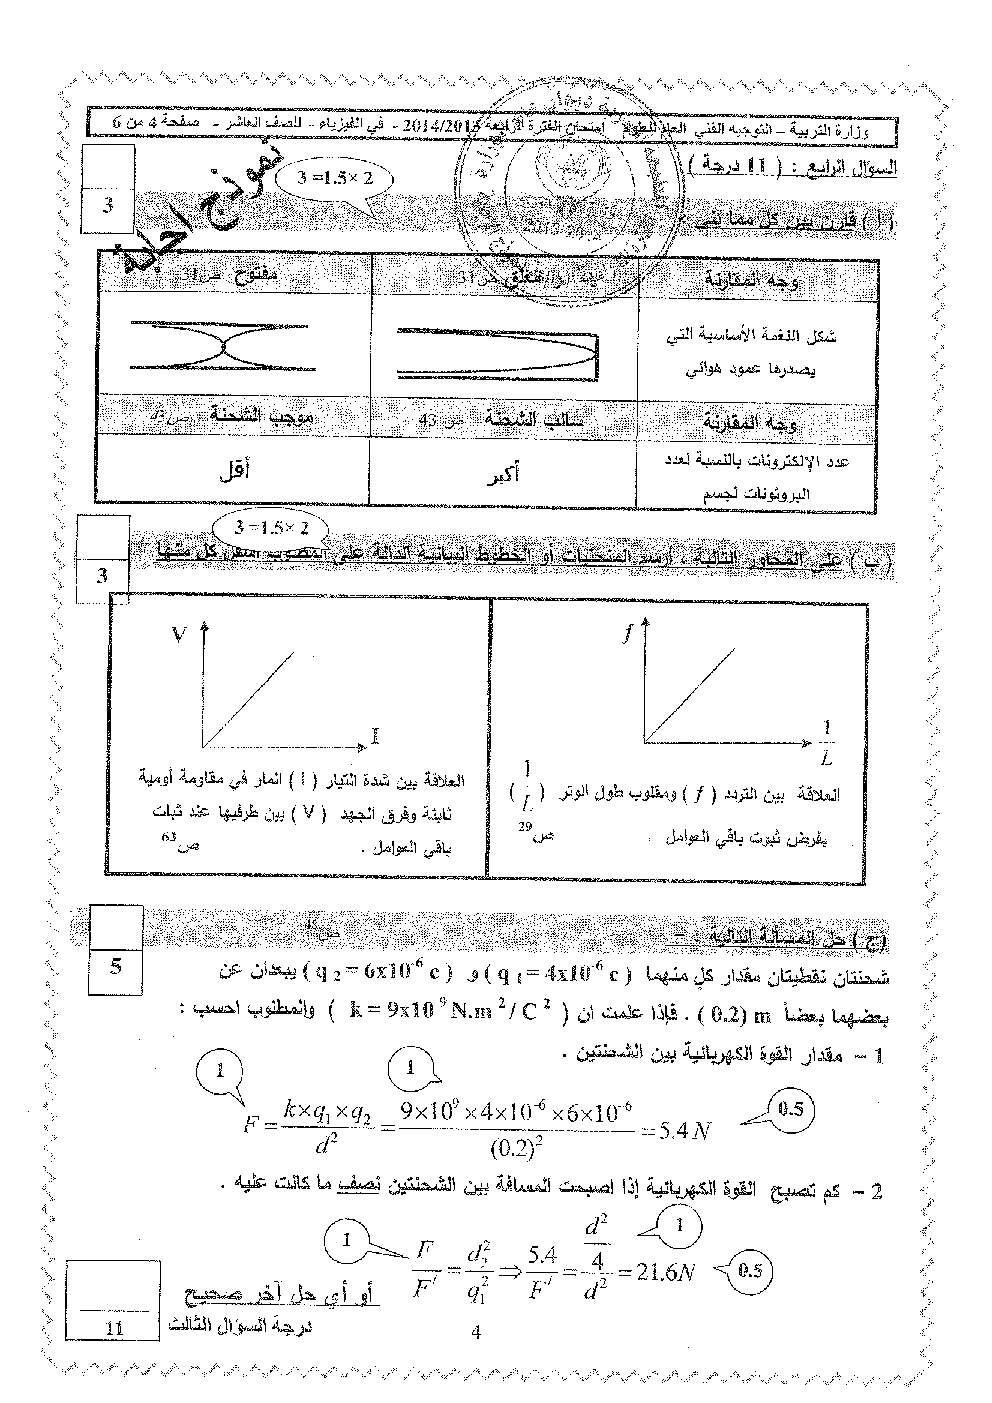 وزارة التربية – التوجيه الفني العام للعلوم – امتحان الفترة الرابعة 2014/2013 - في الفيزياء - للصف العاشر - صفحة 4 من 6
السؤال الرابع : ( 11 درجة )
نموذج اجابة
3 =1.5× 2
3
( أ ) قارن بين كل مما يلي :
وجه المقارنة
مغلق ص31
مفتوح ص31
شكل النغمة الأساسية التي
يصدرها عمود هوائي
وجه المقارنة
سالب الشحنة ص 43
موجب الشحنة ص43
عدد الإلكترونات بالنسبة لعدد
البروتونات لجسم
أكبر
أقل
3 =1.5× 2
3
( ب ) على المحاور التالية ، ارسم المنحنيات أو الخطوط البيانية الدالة على المطلوب أسفل كل منها
f
1/L
V
I
العلاقة بين التردد ( f ) ومقلوب طول الوتر ( 1/L )
بفرض ثبوت باقي العوامل . ص29
العلاقة بين شدة التيار ( I ) المار في مقاومة أومية
ثابتة وفرق الجهد ( V ) بين طرفيها عند ثبات
باقي العوامل . ص63
5
(ج ) حل المسألة التالية : –
شحنتان نقطيتان مقدار كل منهما ( q 1= 4x10-6 c ) و ( q 2 = 6x10-6 c ) يبعدان عن
بعضهما بعضاً m (0.2 ) . فإذا علمت ان ( k = 9x10 9 N.m 2 / C 2 ) والمطلوب احسب :
1 – مقدار القوة الكهربائية بين الشحنتين .
1
1
0.5
F = k×q1×q2 / d2 = 9×109 ×4×10-6 ×6×10-6 / (0.2)2 = 5.4 N
2 – كم تصبح القوة الكهربائية إذا اصبحت المسافة بين الشحنتين نصف ما كانت عليه .
1
1
0.5
F / F/ = d22 / q12 ⇒ 5.4 / F/ = d2/4 / d2 = 21.6N
أو أي حل آخر صحيح
11
درجة السؤال الثالث
4